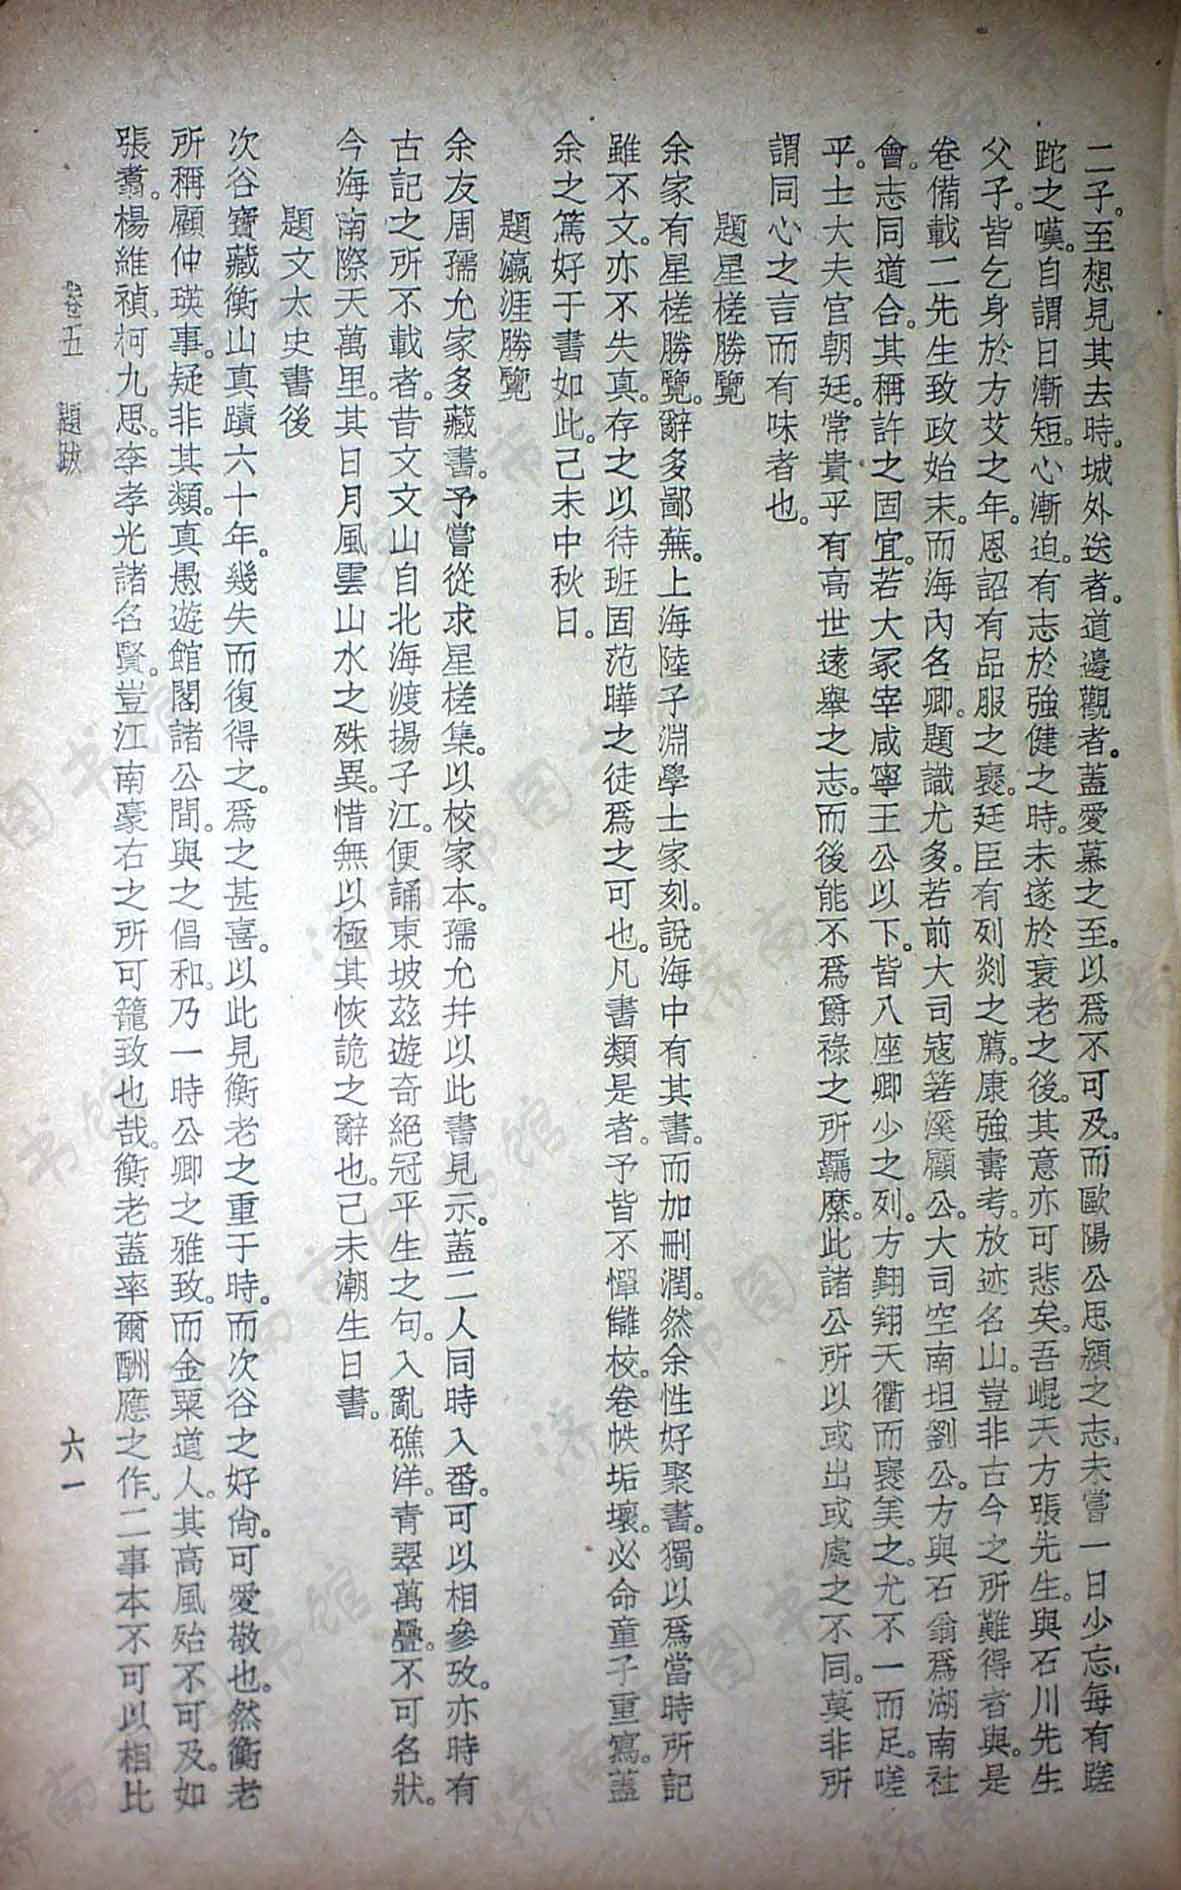 二子。至想見其去時。城外送者。道邊觀者。蓋愛慕之至。以爲不可及。而歐陽公思潁之志。未嘗一日少忘。每有蹉
跎之嘆。自謂日漸短。心漸迫。有志於強健之時。未遂於衰老之後。其意亦可悲矣。吾崐天方張先生。與石川先生
父子。皆乞身於方艾之年。恩詔有品服之褒。廷臣有列剡之薦。康強壽考。放迹名山。豈非古今之所難得者與。是
卷備載二先生致政始末。而海內名卿。題識尤多。若前大司寇箬溪顧公。大司空南坦劉公。方與石翁爲湖南社
會。志同道合。其稱許之固宜。若大冢宰咸寧王公以下。皆八座卿少之列。方翺翔天衢而褒美之。尤不一而足。嗟
乎。士大夫官朝廷。常貴乎有高世遠舉之志。而後能不爲爵祿之所羈縻。此諸公所以或出或處之不同。莫非所
謂同心之言而有味者也。
題星槎勝覽
余家有星槎勝覽。辭多鄙蕪。上海陸子淵學士家刻。說海中有其書。而加刪潤。然余性好聚書。獨以爲當時所記
雖不文。亦不失真。存之以待班固范曄之徒爲之可也。凡書類是者。予皆不憚讎校。卷帙垢壞。必命童子重寫。蓋
余之篤好于書如此。己未中秋日。
題瀛涯勝覽
余友周孺允家多藏書。予嘗從求星槎集。以校家本。孺允幷以此書見示。蓋二人同時入番。可以相參攷。亦時有
古記之所不載者。昔文文山自北海渡揚子江。便誦東坡茲遊奇絕冠平生之句。入亂礁洋。青翠萬疊。不可名狀。
今海南際天萬里。其日月風雲山水之殊異。惜無以極其恢詭之辭也。己未潮生日書。
題文太史書後
次谷寶藏衡山真蹟六十年。幾失而復得之。爲之甚喜。以此見衡老之重于時。而次谷之好尙。可愛敬也。然衡老
所稱顧仲瑛事。疑非其類。真愚遊館閣諸公間。與之倡和。乃一時公卿之雅致。而金粟道人。其高風殆不可及。如
張翥。楊維禎。柯九思。李孝光諸名賢。豈江南豪右之所可籠致也哉。衡老蓋率爾酬應之作。二事本不可以相比
卷五 題跋
六一